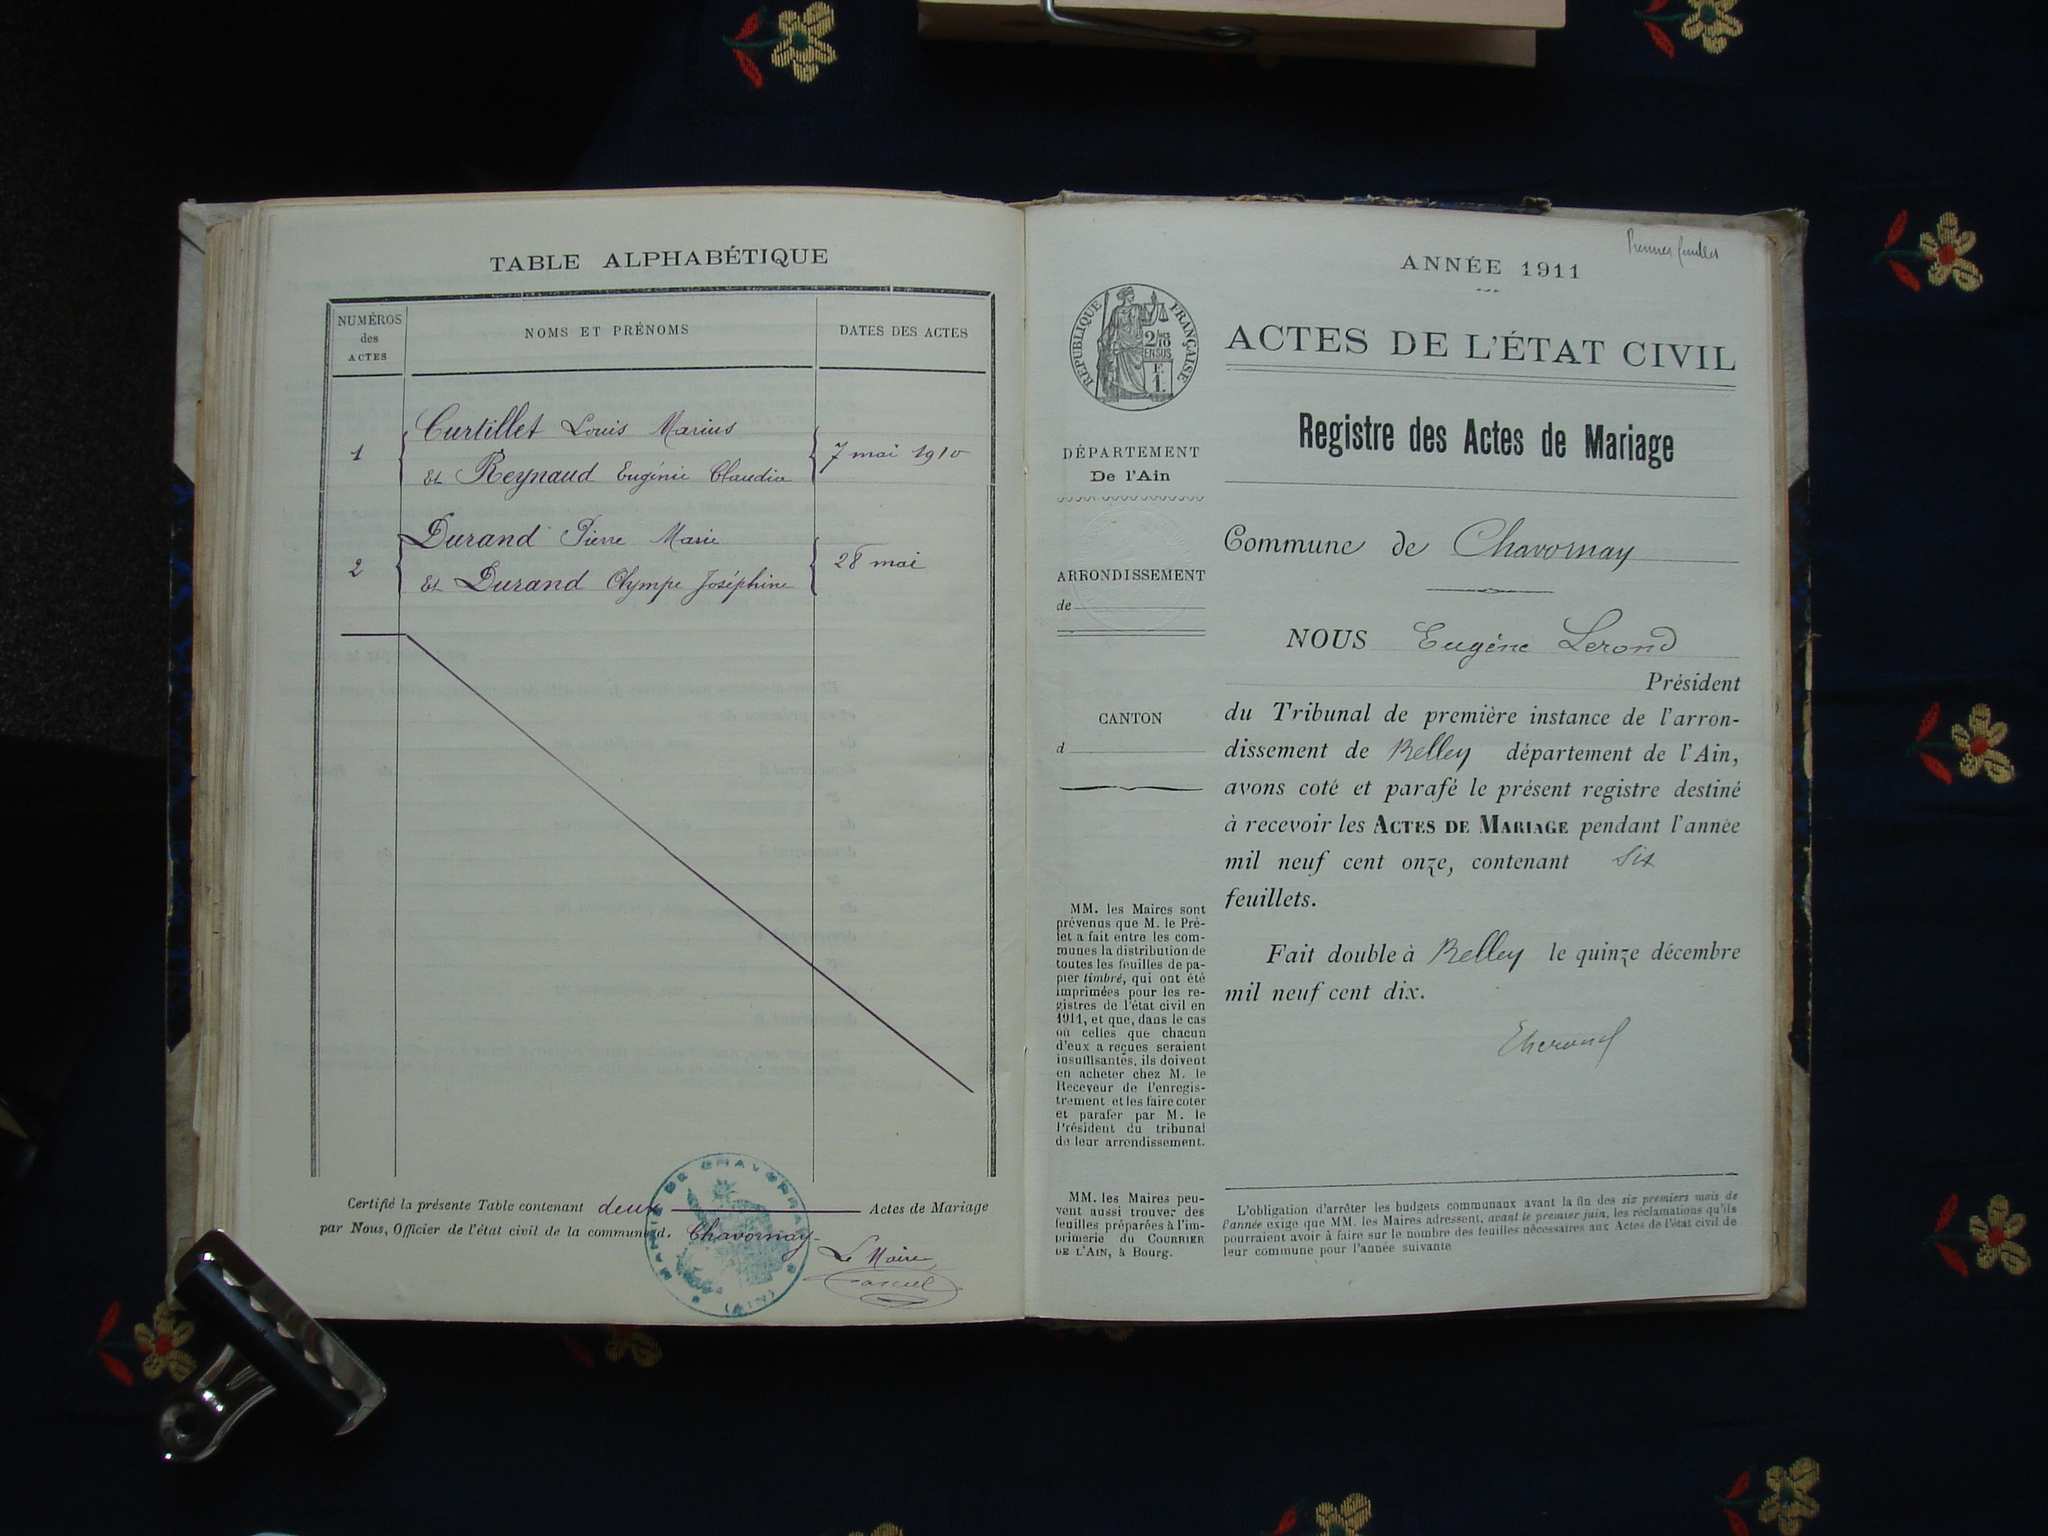 TABLE ALPHABÉTIQUE
NUMÉROS
des
ACTES
NOMS ET PRÉNOMS
DATES DES ACTES
1
Curtillet Louis Marius
et Reynaud Eugénie Claudia
7 mai 1910
2
Durand Pierre Marie
et Durand Olympe Joséphine
28 mai
Certifié la présente Table contenant deux Actes de Mariage
par Nous, Officier de l'état civil de la commune d. Chavornay
Le Maire
MAIRIE DE CHAVORNAY
(AIN)
Premier feuillet
ANNÉE 1911
RÉPUBLIQUE FRANÇAISE
ACTES DE L'ÉTAT CIVIL
Registre des Actes de Mariage
DÉPARTEMENT
De l'Ain
ARRONDISSEMENT
de
CANTON
d
Commune de Chavornay
NOUS Eugène Lerond
Président
du Tribunal de première instance de l'arron-
dissement de Belley département de l'Ain,
avons coté et parafé le présent registre destiné
à recevoir les ACTES DE MARIAGE pendant l'année
mil neuf cent onze, contenant six
feuillets.
Fait double à Belley le quinze décembre
mil neuf cent dix.
ELerond
MM. les Maires sont
prévenus que M. le Pré-
fet a fait entre les com-
munes la distribution de
toutes les feuilles de pa-
pier timbré, qui ont été
imprimées pour les re-
gistres de l'état civil en
1911, et que, dans le cas
où celles que chacun
d'eux a reçues seraient
insuffisantes, ils doivent
en acheter chez M. le
Receveur de l'enregis-
trement et les faire coter
et parafer par M. le
Président du tribunal
de leur arrondissement.
MM. les Maires peu-
vent aussi trouver des
feuilles préparées à l'im-
primerie du COURRIER
DE L'AIN, à Bourg.
L'obligation d'arrêter les budgets communaux avant la fin des six premiers mois de
l'année exige que MM. les Maires adressent, avant le premier juin, les réclamations qu'ils
pourraient avoir à faire sur le nombre des feuilles nécessaires aux Actes de l'état civil de
leur commune pour l'année suivante